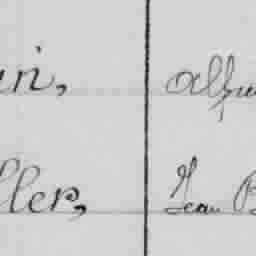 in, Alfre
ller, Jean B